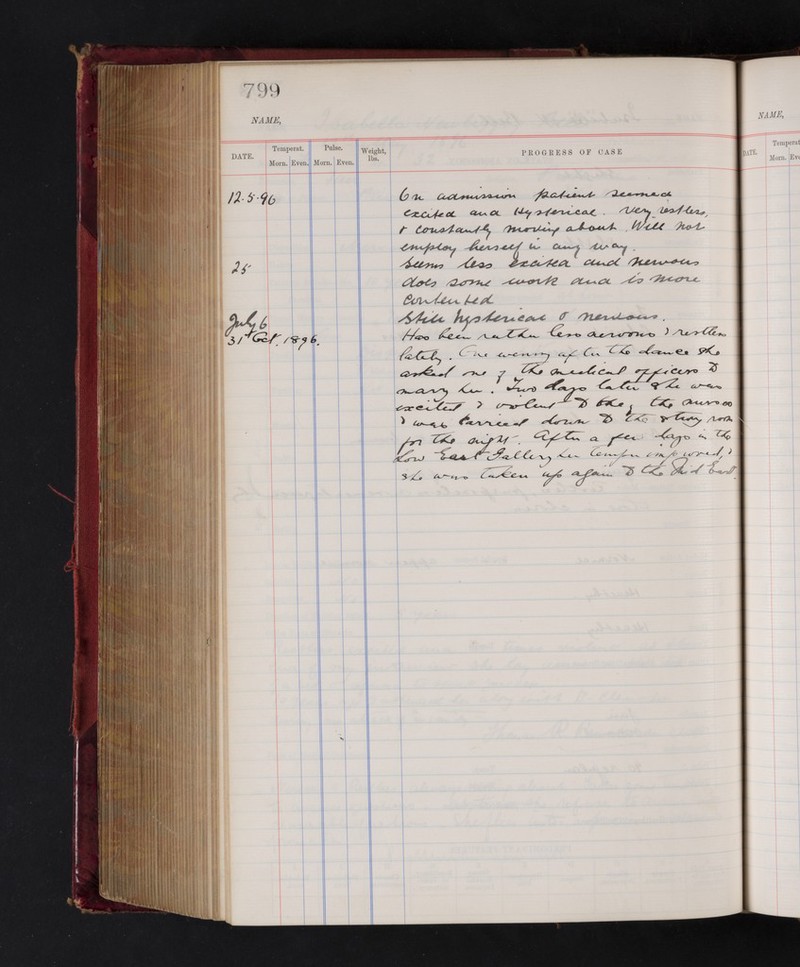 799
NAME,
NAME,
DATE.
Temperat.
Pulse.
Weight, lbs.
PROGRESS OF CASE
Morn. Even. Morn. Even.
DATE.
Temperat
Morn. Eve
12.5.96 On admission patient seemed
excited and hysterical. Very restless,
& constantly moving about. Will not
employ herself in any way.
25 Seems less excited and nervous
does some work and is more
contented
July 6 Still hysterical & nervous.
31st Oct. 1896. Has been rather less nervous & restless
lately. One evening after the dance she
asked one of the medical officers to
marry her. Two days later she was
excited & violent to the nurses
& was carried down to the strong room
for the night. After a few days in the
Low East Gallery her temper improved, &
she was taken up again to the East